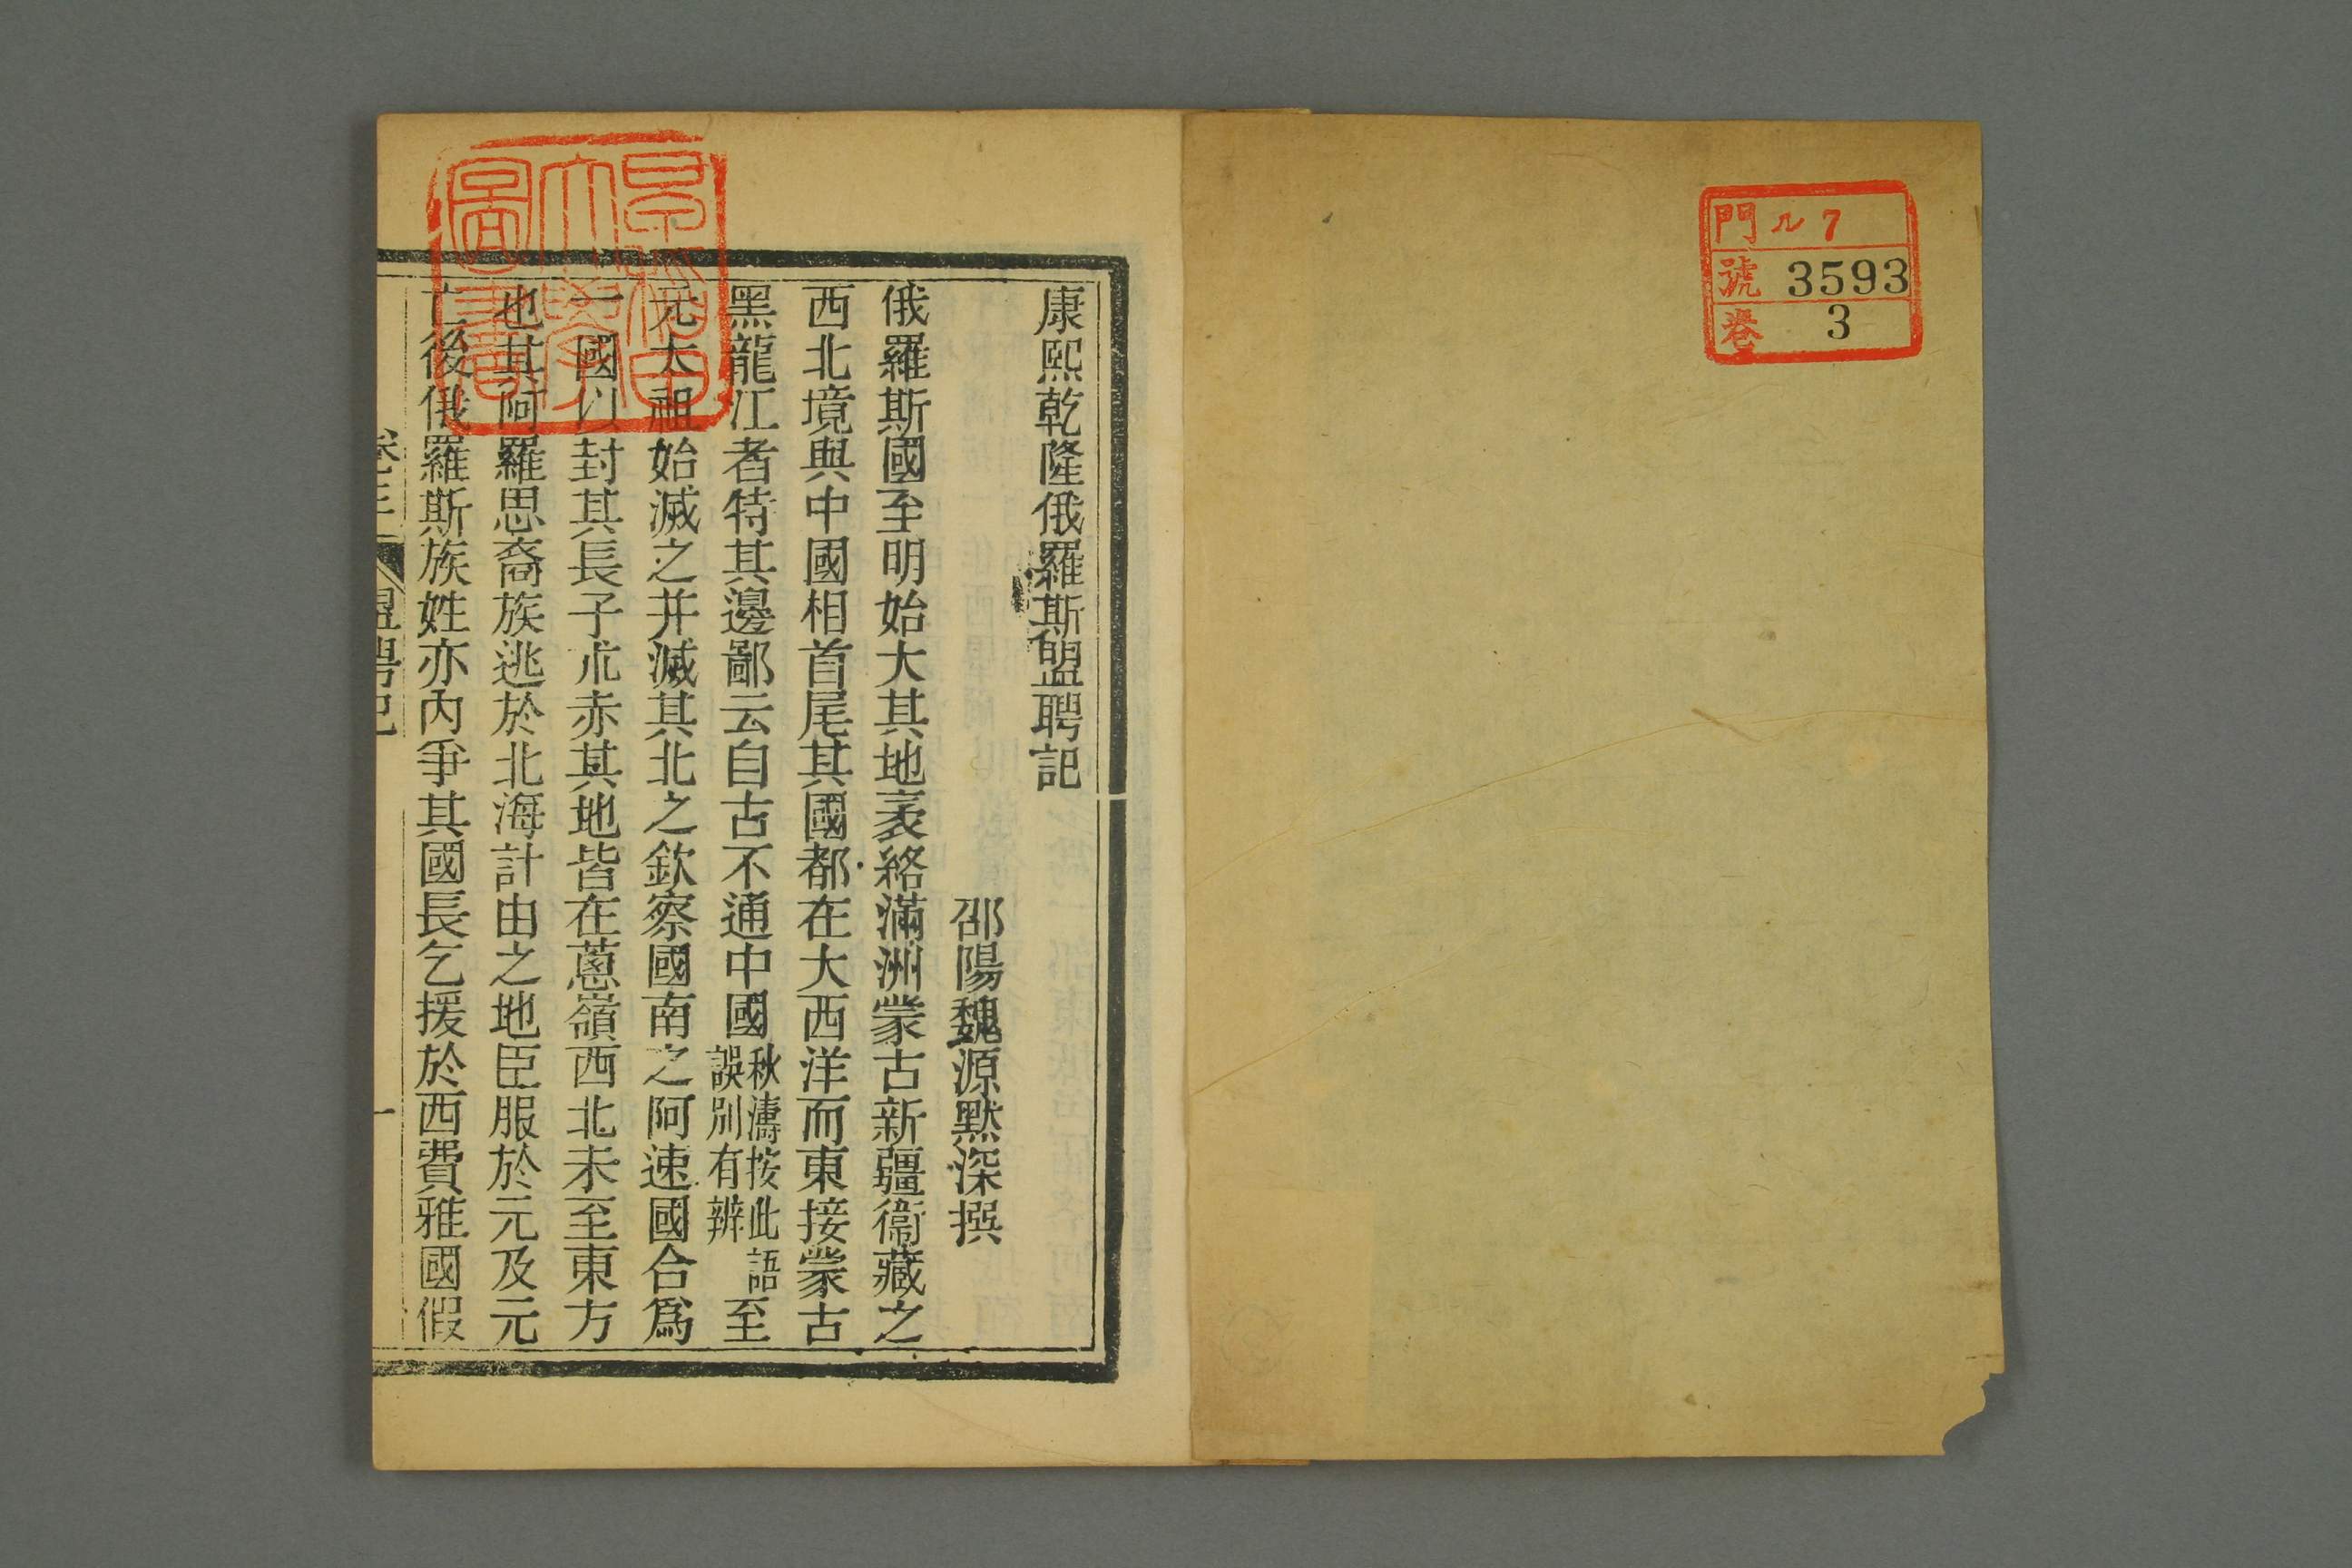 門ル7
號3593
巻3
康熙乾隆俄羅斯盟聘記
邵陽魏源默深撰
俄羅斯國至明始大其地袤絡滿洲蒙古新疆衞藏之
西北境與中國相首尾其國都在大西洋而東接蒙古
黑龍江者特其邊鄙云自古不通中國秋濤按此語誤別有辨至
元太祖始滅之并滅其北之欽察國南之阿速國合爲
一國以封其長子朮赤其地皆在蔥嶺西北未至東方
也其阿羅思裔族逃於北海計由之地臣服於元及元
亡後俄羅斯族姓亦內爭其國長乞援於西費雅國假
卷三 盟聘記 一
早稲田大學圖書